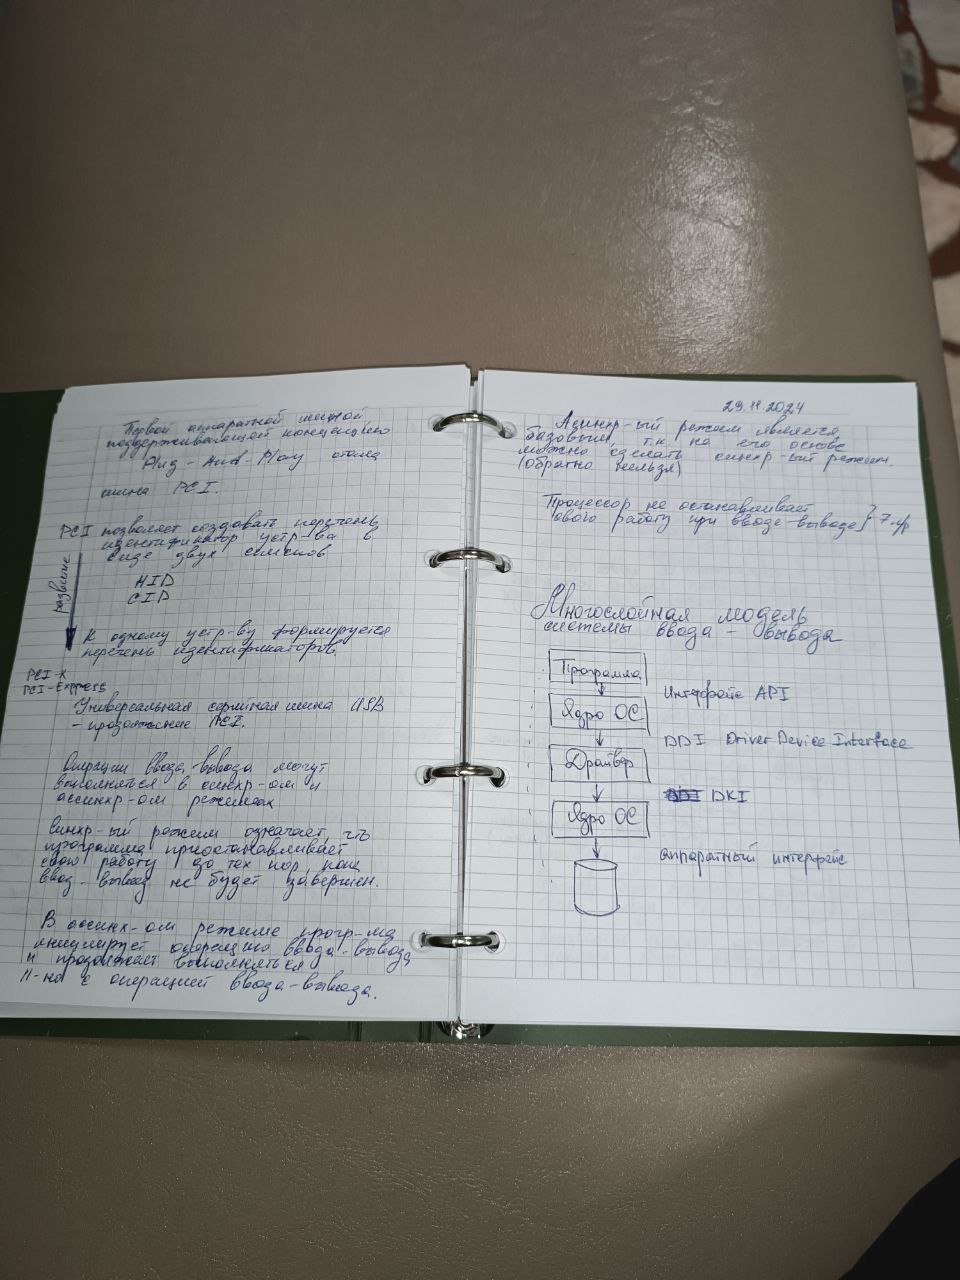 Первой аппаратной шиной
поддерживающей концепцию
Plug-And-Play стала
шина PCI.
PCI позволяет создавать перечень
идентификатор устр-ва в
виде двух списков
HID
CID
развитие
К одному устр-ву формируется
перечень идентификаторов
PCI-X
PCI-Express
Универсальная серийная шина USB
- продолжение PCI.
Операции Ввода-вывода могут
выполняться в синхр-ом и
ассинхр-ом режимах
Синхр-ый режим означает, что
программа приостанавливает
свою работу до тех пор, пока
ввод-вывод не будет завершен.
В ассинх-ом режиме прогр-ма
операцию ввода-вывода
и продолжает выполняться
II-но с операцией ввода-вывода.
29.11.2024
Асинхр-ый режим является
базовым, т.к. на его основе
можно сделать синхр-ый режим.
(обратно нельзя)
Процессор не останавливает
свою работу при вводе-выводе
Многослойная модель
системы ввода-вывода
Программа
Интерфейс API
Ядро ОС
DDI Driver Device Interface
Драйвер
DKI
Ядро ОС
аппаратный интерфейс